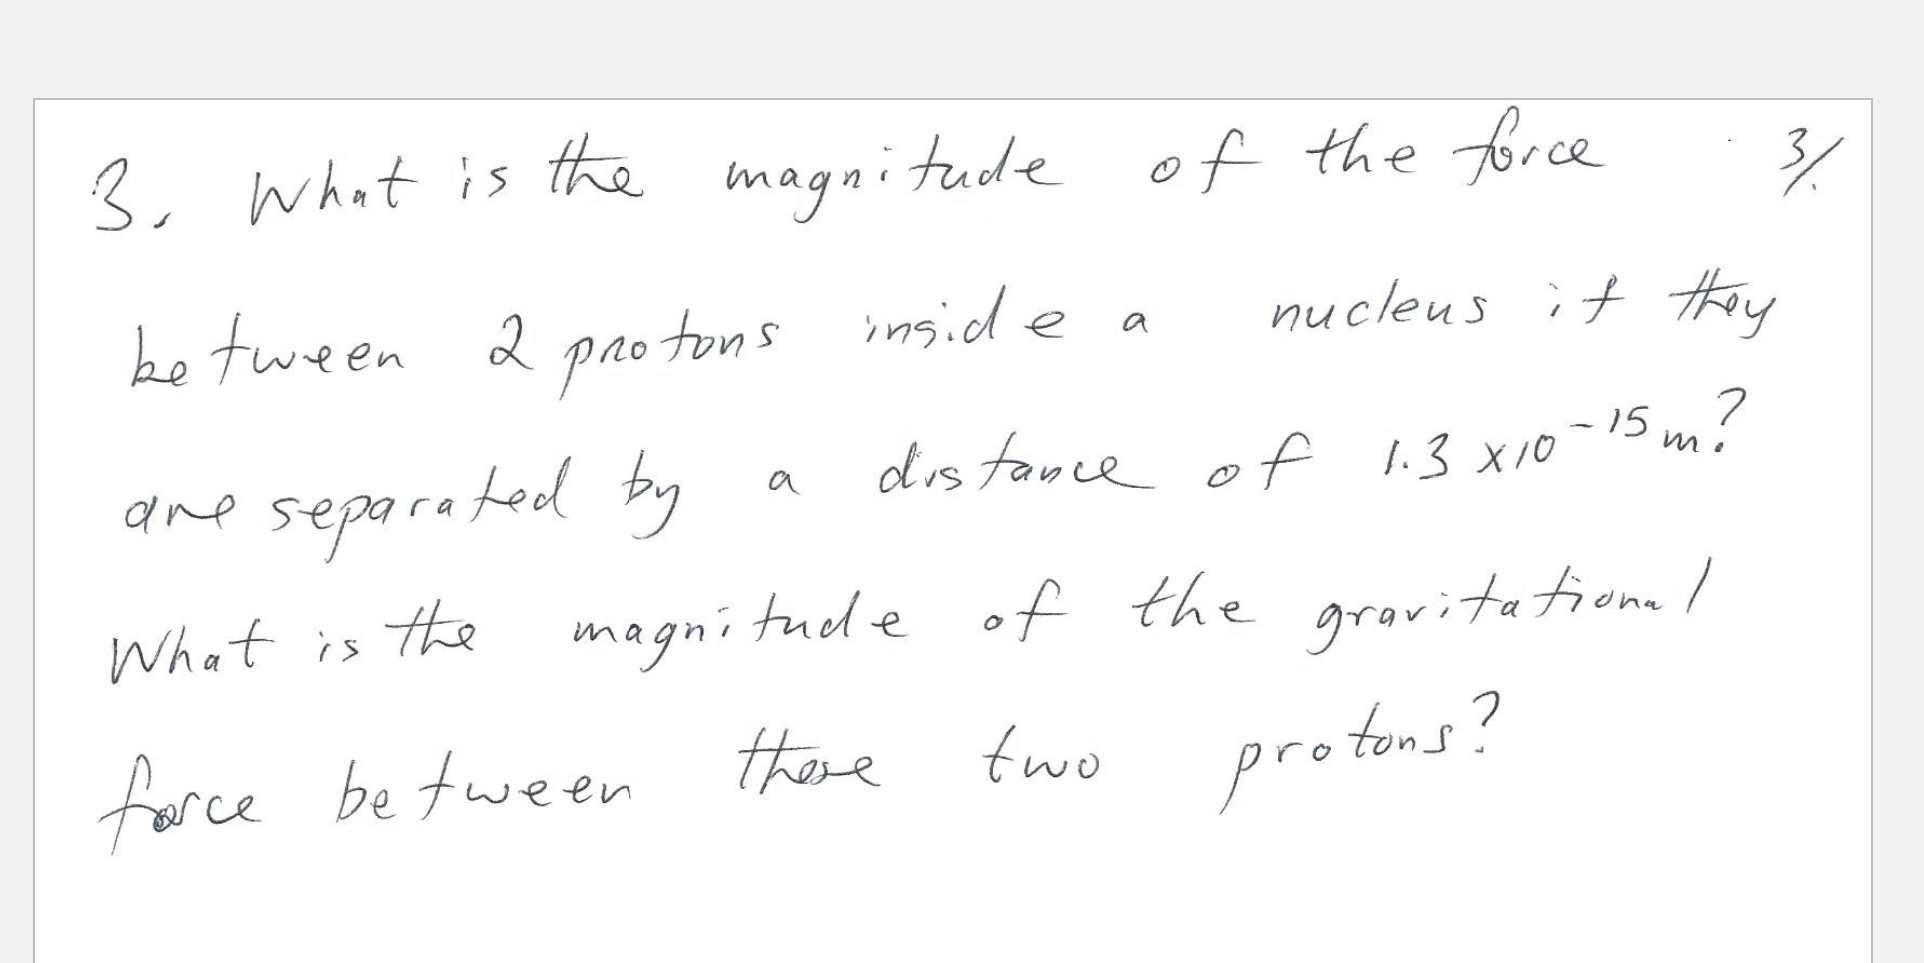 3. What is the magnitude of the force 3/.
between 2 protons inside a nucleus if they
are separated by a distance of 1.3 x10^-15 m?
What is the magnitude of the gravitational
force between these two protons?